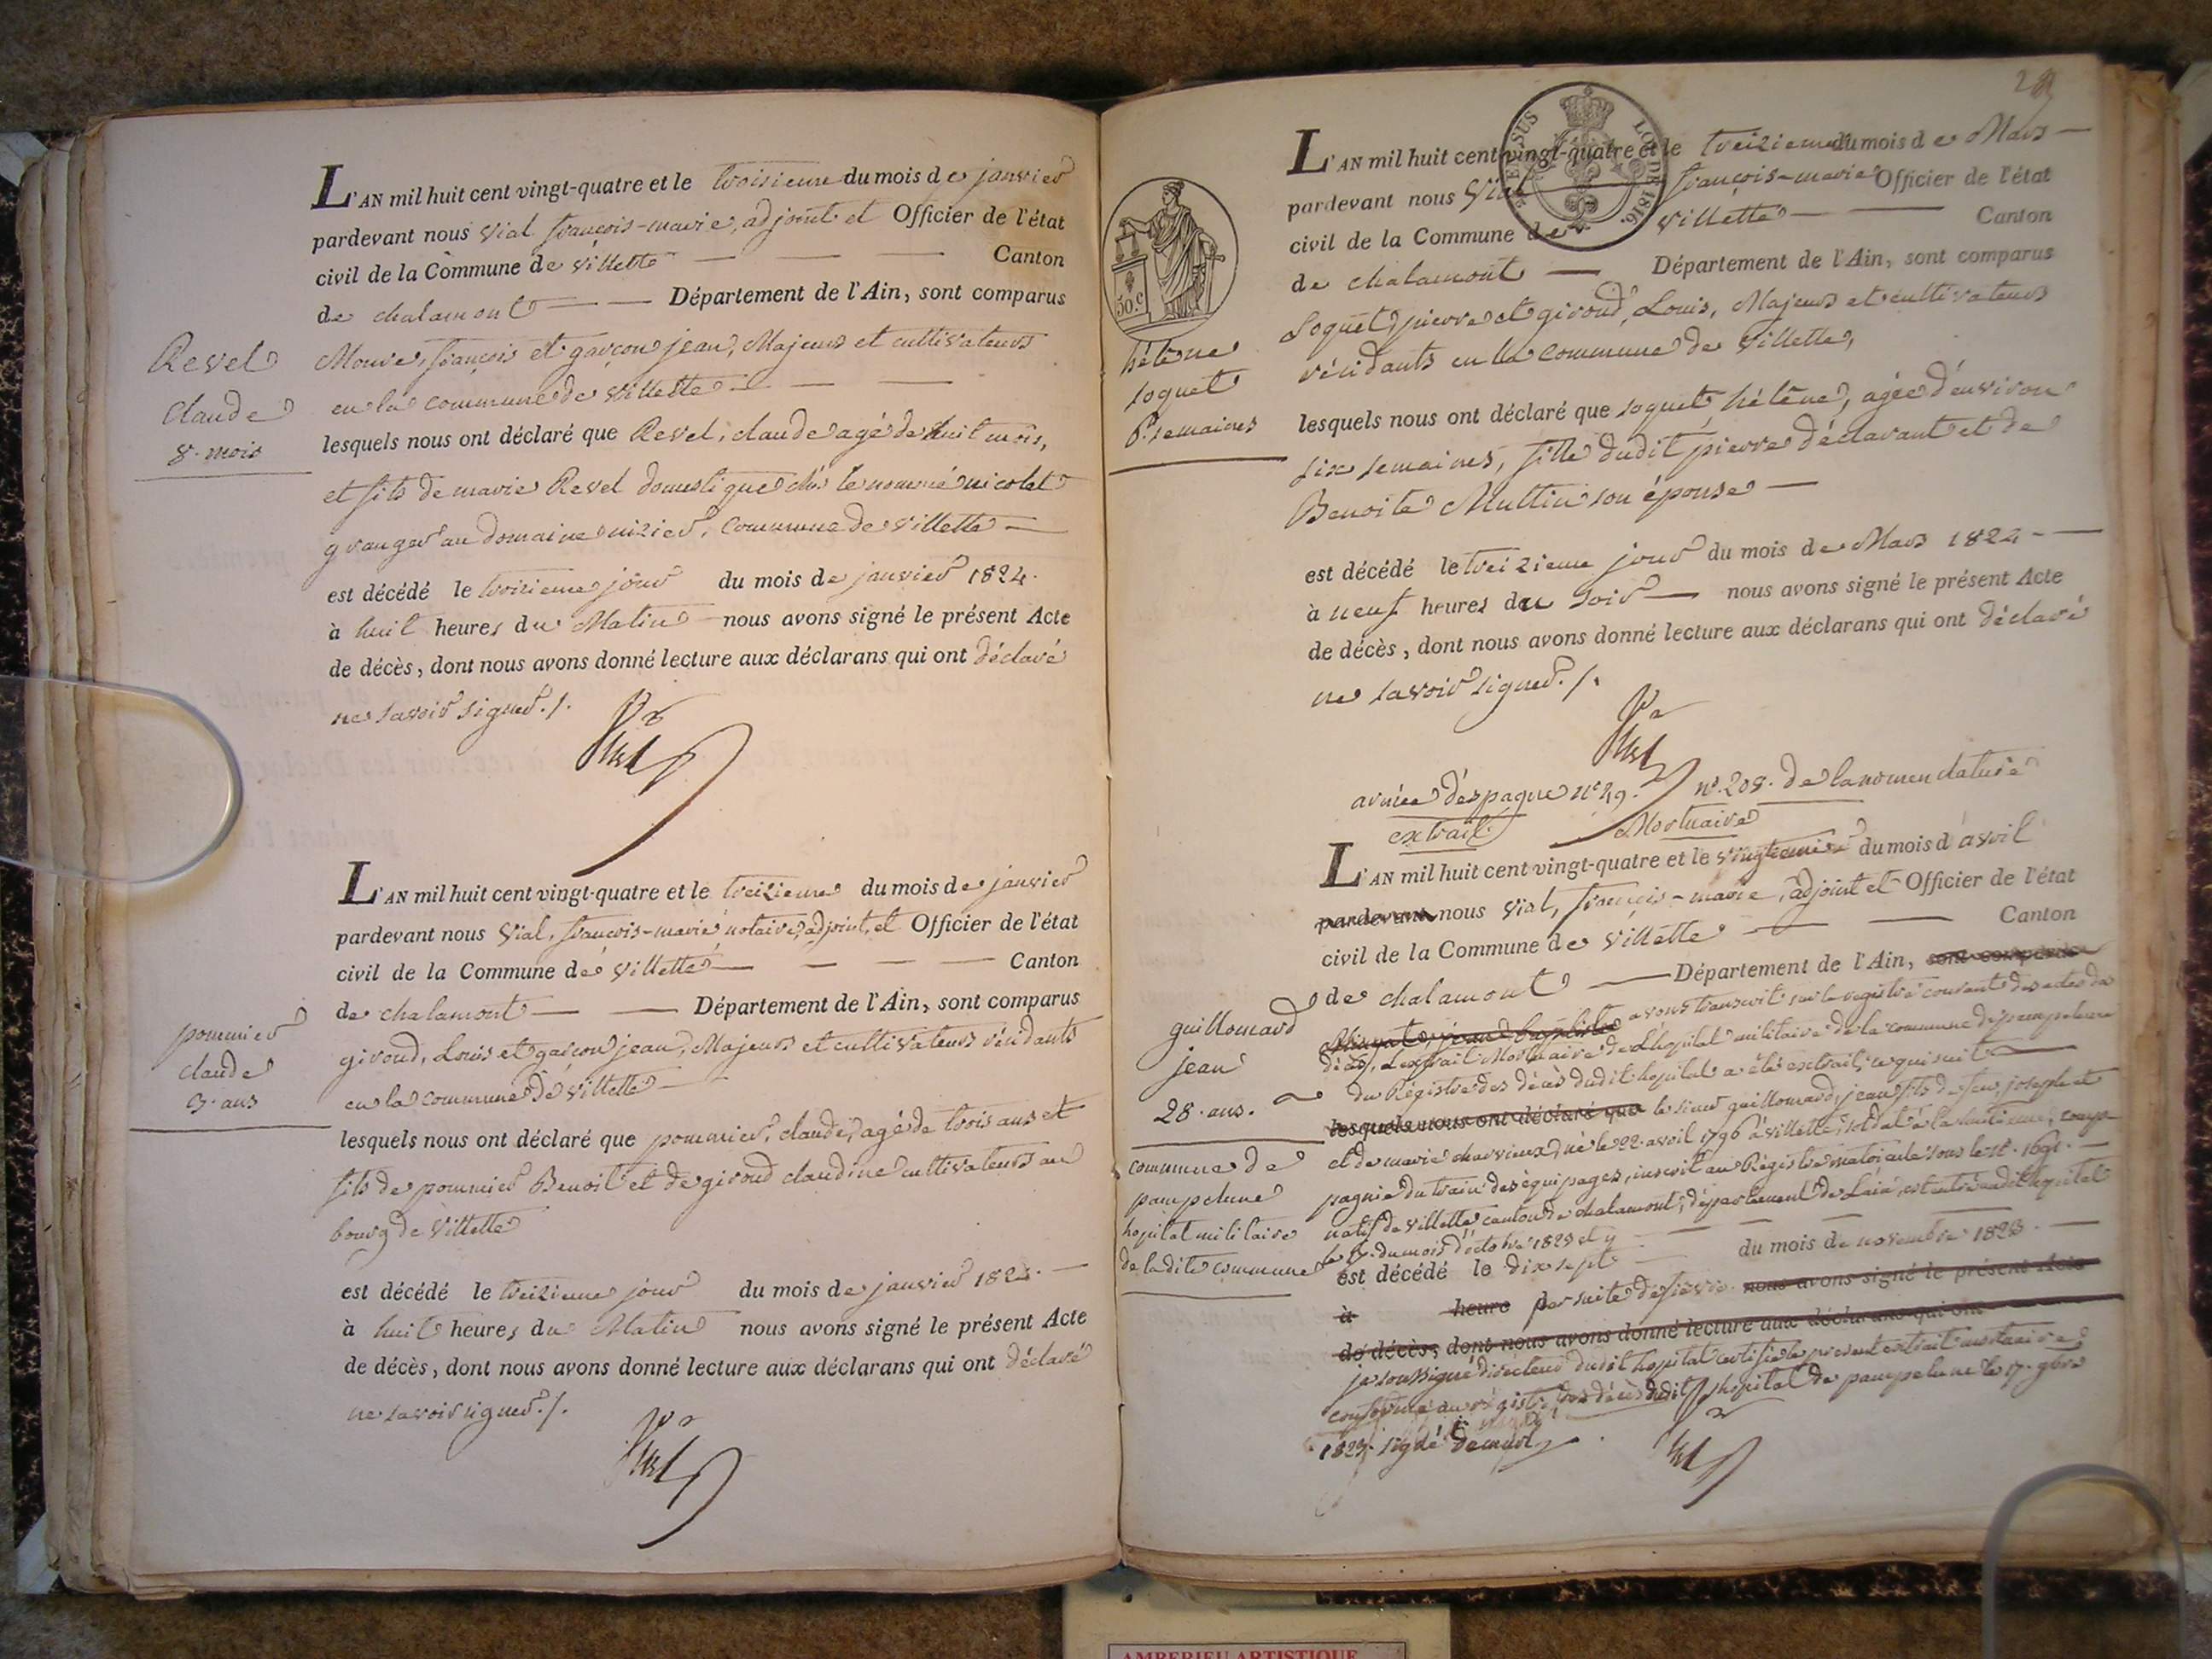 L'AN mil huit cent vingt-quatre et le troisieme du mois de janvier
pardevant nous Vial françois-marie, adjoint et Officier de l'état
civil de la Commune de villette — — — Canton
de chalamont — — Département de l'Ain, sont comparus
Revel
claude
8. mois
françois et garçon jean, Majeurs et cultivateurs
en la commune de villette — — —
lesquels nous ont déclaré que Revel, claude agé de huit mois,
et fils de marie Revel domestique chés le nommé nicolet
granger au domaine commune de villette —
est décédé le troisieme jour du mois de janvier 1824.
à huit heures du Matin nous avons signé le présent Acte
de décès, dont nous avons donné lecture aux déclarans qui ont déclaré
ne savoir signer./.
Vial
L'AN mil huit cent vingt-quatre et le treizieme du mois de janvier
pardevant nous Vial, françois-marie notaire, adjoint, et Officier de l'état
civil de la Commune de villette — — — Canton
de chalamont — — Département de l'Ain, sont comparus
pommier
claude
3. ans
giroud, Louis et garçon jean, Majeurs et cultivateurs résidants
en la commune de villette —
lesquels nous ont déclaré que pommier, claude, agé de trois ans et
fils de pommier Benoit et de giroud claudine cultivateurs au
bourg de villette
est décédé le treizieme jour du mois de janvier 1824. —
à huit heures du Matin nous avons signé le présent Acte
de décès, dont nous avons donné lecture aux déclarans qui ont déclaré
ne savoir signer./.
Vial
LOI DE 1816.
30.c
L'AN mil huit cent vingt-quatre et le treizieme du mois de Mars —
pardevant nous Vial françois-marie Officier de l'état
civil de la Commune de villette — — Canton
de chalamont — Département de l'Ain, sont comparus
hélène
soquet
6. semaines
Soquet, pierre et giroud, Louis, Majeurs et cultivateurs
résidants en la commune de villette,
lesquels nous ont déclaré que soquet hélène, agée d'environ
six semaines, fille dudit pierre déclarant et de
Benoite Multin son épouse —
est décédé le treizieme jour du mois de Mars 1824 —
à neuf heures du soir — nous avons signé le présent Acte
de décès, dont nous avons donné lecture aux déclarans qui ont déclaré
ne savoir signer./.
Vial
armée d'espagne n° 49. n°. 208. de la nomenclature
extrait Mortuaire
L'AN mil huit cent vingt-quatre et le du mois d'avril
pardevant nous Vial, françois-marie, adjoint et Officier de l'état
civil de la Commune de villette — — Canton
de chalamont — Département de l'Ain, sont comparus
guillomard
jean
28. ans.
commune de
pampelune
hopital militaire
de ladite commune
jean baptiste avons transcrit sur le registre courant des actes de
décès, l'extrait Mortuaire de l'hopital militaire de la commune de pampelune
du Régistre des décès dudit hopital a été extrait ce qui suit —
lesquels nous ont déclaré que le sieur guillomard, jean fils de feu, joseph et
et de marie charvieux, né le 22 avril 1796 à villette, soldat à la comp-
pagnie du train des équipages, inscrit au Régistre matricule sous le n°. 1691. —
natif de villette, canton de chalamont, département de l'ain, est entré audit hopital
le du mois d'octobre 1823 et y —
est décédé le dix sept du mois de novembre 1823. —
à heure par suite de fievre. nous avons signé le présent Acte
de décès, dont nous avons donné lecture aux déclarans qui ont
je soussigné directeur dudit hopital certifie le present extrait mortuaire
conforme au régistre des décès dudit hopital de pampelune le 17. 9bre
1823. signé
Vial
AMBERIEU ARTISTIQUE